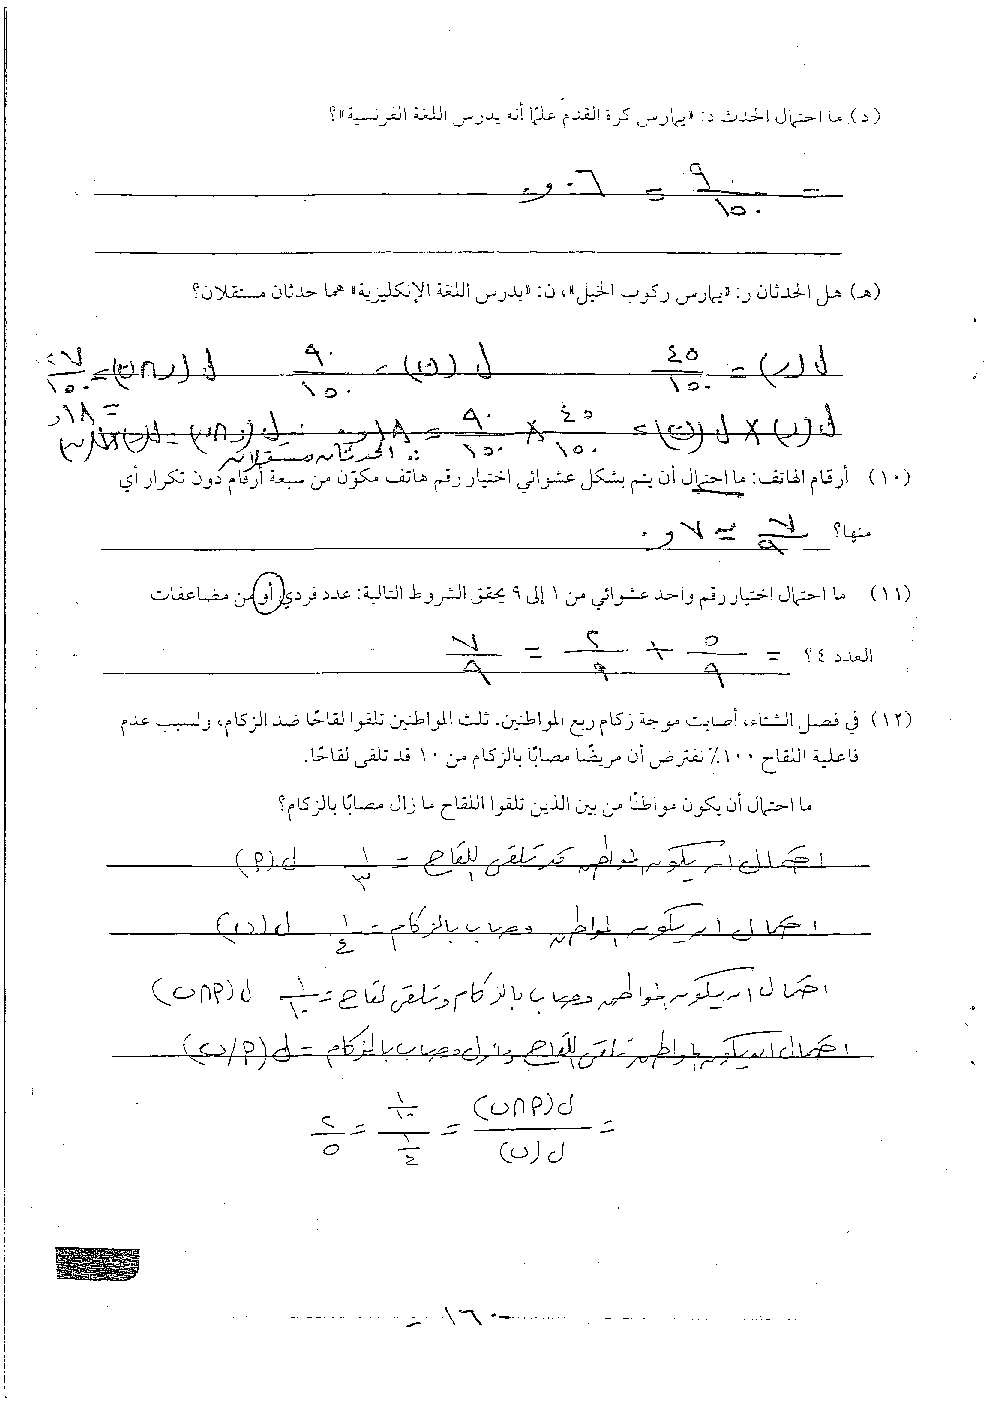 (د) ما احتمال الحدث د: «يمارس كرة القدم علمًا أنه يدرس اللغة الفرنسية»؟
= ٩/١٥٠ = ٠٦و٠
(هـ) هل الحدثان ر: «يمارس ركوب الخيل»، ن: «يدرس اللغة الإنكليزية» هما حدثان مستقلان؟
ل(ر) = ٤٥/١٥٠ ل(ن) = ٩٠/١٥٠ ل(ر∩ن) = ٢٧/١٥٠
= ١٨و
ل(ر) × ل(ن) = ٤٥/١٥٠ × ٩٠/١٥٠ = ١٨و
∴ الحدثان مستقلان
(١٠) أرقام الهاتف: ما احتمال أن يتم بشكل عشوائي اختيار رقم هاتف مكوّن من سبعة أرقام دون تكرار أي
منها؟ ٧/٩ = ٧و٠
(١١) ما احتمال اختيار رقم واحد عشوائي من ١ إلى ٩ يحقق الشروط التالية: عدد فردي أو من مضاعفات
العدد ٤؟ = ٥/٩ + ٢/٩ = ٧/٩
(١٢) في فصل الشتاء، أصابت موجة زكام ربع المواطنين. ثلث المواطنين تلقوا لقاحًا ضد الزكام، ولسبب عدم
فاعلية اللقاح ١٠٠٪ نفترض أن مريضًا مصابًا بالزكام من ١٠ قد تلقى لقاحًا.
ما احتمال أن يكون مواطنًا من بين الذين تلقوا اللقاح ما زال مصابًا بالزكام؟
احتمال ان يكون المواطن قد تلقى اللقاح = ١/٣ ل(م)
احتمال ان يكون المواطن مصاب بالزكام = ١/٤ ل(ن)
احتمال ان يكون المواطن مصاب بالزكام وتلقى لقاح = ١/١٠ ل(م∩ن)
احتمال ان يكون المواطن تلقى اللقاح ومازال مصاب بالزكام = ل(م/ن)
= ل(م∩ن)/ل(ن) = ١/١٠ / ١/٤ = ٢/٥
- ١٦٠ -